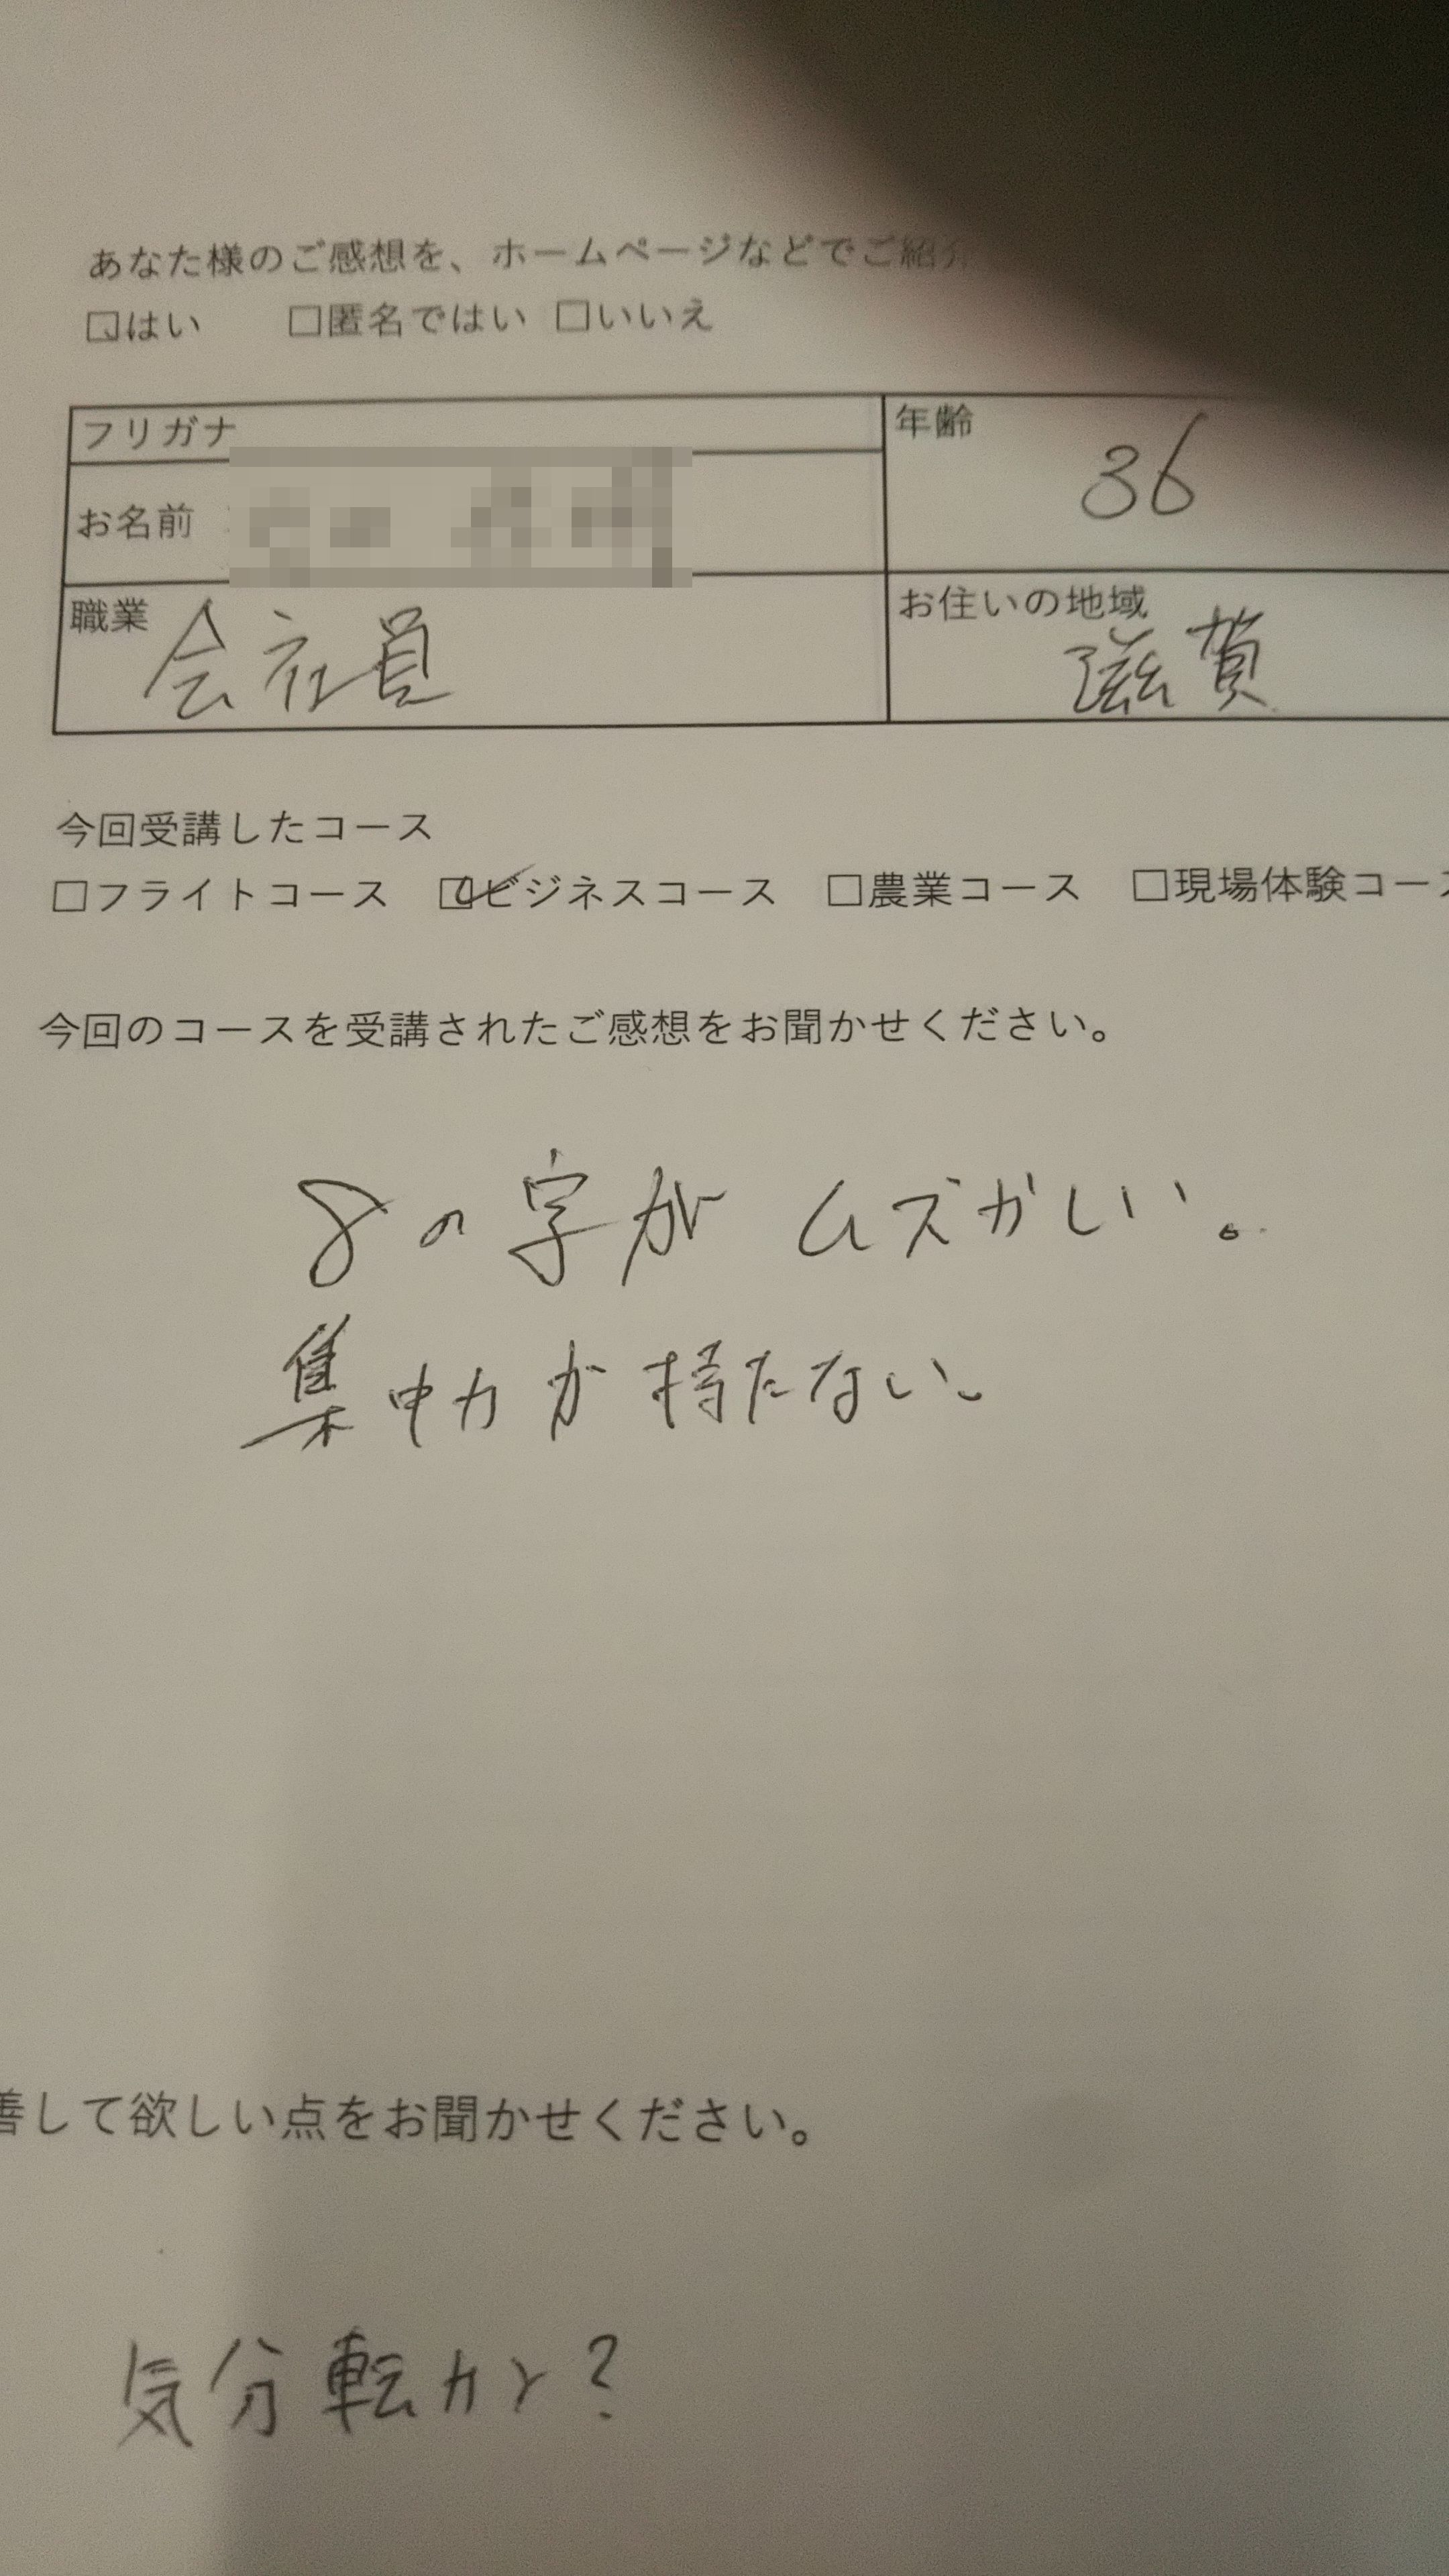 あなた様のご感想を、ホームページなどでご紹
□はい □匿名ではい □いいえ
フリガナ
年齢 36
お名前
職業 会社員
お住いの地域 滋賀
今回受講したコース
□フライトコース ☑ビジネスコース □農業コース □現場体験コース
今回のコースを受講されたご感想をお聞かせください。
8の字が ムズかしい。
集中力が持たない。
善して欲しい点をお聞かせください。
気分転カン?